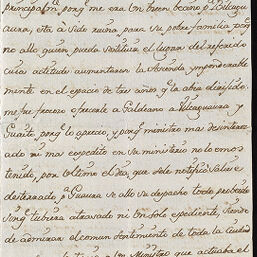 principalm.te porq.e me era un buen vecino p.a Valcaguaura
aura, esta à sido ruina para su pobre familia, porq.e
no allo quien pueda sostituir el lugar del referido
cuia actitud aumentaron la Hacienda ymponderable
mente en el espacio de tres años q.e la abra dirijido.
me fue forzoso ofrecerle a Galdiano a
Guaito, porq.e lo aprecio, y porq.e ministro mas desinteresado
ni mas expedito en su ministerio no lo emos
tenido, por ultimo el dia, que sele notificó, Saliese
desterrado, p.a Guaura se allo su despacho tordo
sin q.e tubiera atrasado ni un solo expediente, siendo
de admirar el comun sentimiento de toda la Ciudad
Ministro que actuaba el